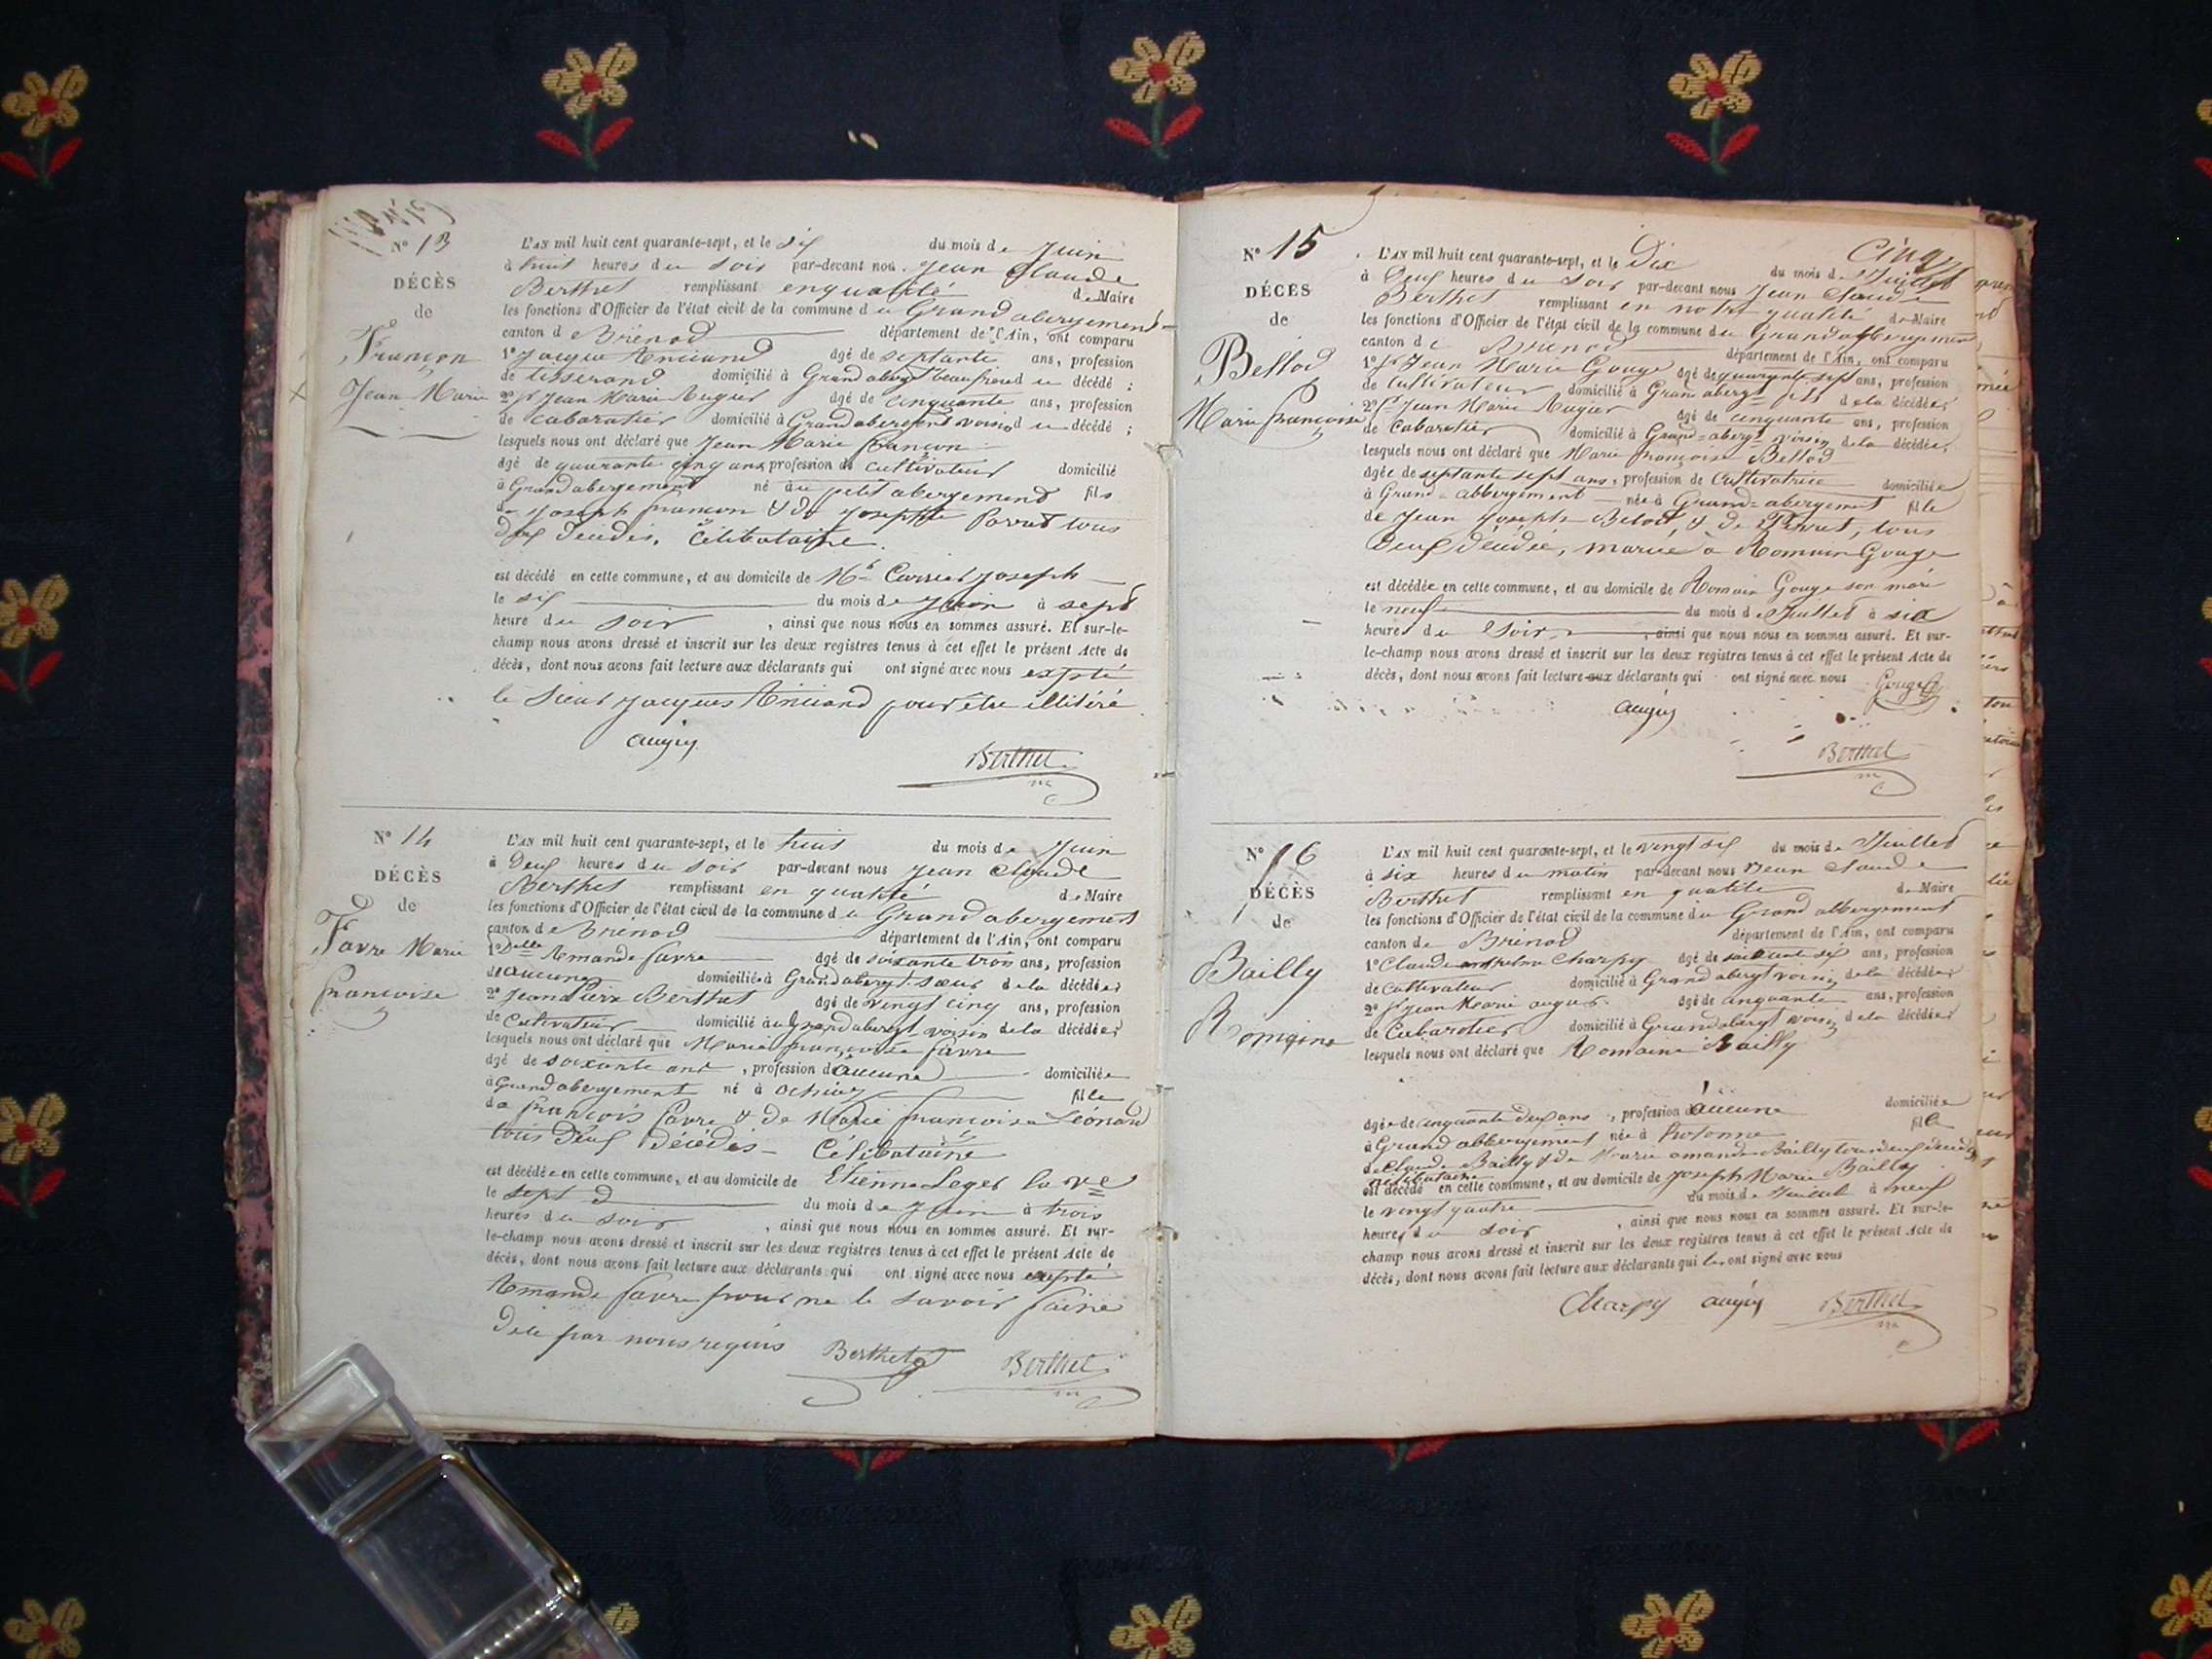 N° 13
DÉCÈS
de
Françon
Jean Marie
L'AN mil huit cent quarante-sept, et le six du mois de Juin
à huit heures du soir par-devant nous Jean Claude
Berthet remplissant en qualité de Maire
les fonctions d'Officier de l'état civil de la commune du Grand abergement
canton de Brénod département de l'Ain, ont comparu
1° Jacque Anciand âgé de septante ans, profession
de tisserand domicilié à Grand abergt beaufrere du décédé ;
2° Sr Jean Marie Augier âgé de cinquante ans, profession
de cabaratier domicilié à Grand abergent voisin du décédé ;
lesquels nous ont déclaré que Jean Marie françon
âgé de quarante cinq ans, profession de cultivateur domicilié
à Grand abergement né au petit abergement fils
de Joseph françon & de Josephte Parrat tous
deux décédés, Célibataire.
est décédé en cette commune, et au domicile de Joseph
le six du mois de Juin à sept
heure du soir , ainsi que nous nous en sommes assuré. Et sur-le-
champ nous avons dressé et inscrit sur les deux registres tenus à cet effet le présent Acte de
décès, dont nous avons fait lecture aux déclarants qui ont signé avec nous expté
le Sieur Jacques Anciand pour être illitéré
augier
Berthet
N° 14
DÉCÈS
de
Favre Marie
françoise
L'AN mil huit cent quarante-sept, et le huit du mois de Juin
à Deux heures du soir par-devant nous Jean Claude
Berthet remplissant en qualité de Maire
les fonctions d'Officier de l'état civil de la commune du Grand abergement
canton de Brénod département de l'Ain, ont comparu
1° Delle Amande favre âgé de soixante trois ans, profession
d'aucune domiciliée à Grand abergt sœur de la décédée
2° Jean Pierre Berthet âgé de vingt cinq ans, profession
de Cultivateur domicilié au Grand abergt voisin de la décédée
lesquels nous ont déclaré que Marie françoise favre
âgé de soixante ans , profession d'aucune domiciliée
à Grand abergement né à fille
de françois favre & de Marie françoise Léonard
tous Deux Décédés - Célibataire
est décédée en cette commune, et au domicile de Etienne Leger la ve
le sept du mois de Juin à trois
heures du soir , ainsi que nous nous en sommes assuré. Et sur-
le-champ nous avons dressé et inscrit sur les deux registres tenus à cet effet le présent Acte de
décès, dont nous avons fait lecture aux déclarants qui ont signé avec nous expté
Amande favre pour ne le savoir faire
de ce par nous requis Berthet Berthet
Cinq
N° 15
DÉCÈS
de
Bellod
Marie françoise
L'AN mil huit cent quarante-sept, et le Dix du mois de Juillet
à Deux heures du soir par-devant nous Jean Claude
Berthet remplissant en notre qualité de Maire
les fonctions d'Officier de l'état civil de la commune du Grand abbergement
canton de Brenod département de l'Ain, ont comparu
1° Sr Jean Marie Gouge âgé de quarante sept ans, profession
de Cultivateur domicilié à Grand abergt fils de la décédée
2° Sr Jean Marie Augier âgé de cinquante ans, profession
de Cabaretier domicilié à Grand-abergt voisin de la décédée,
lesquels nous ont déclaré que Marie françoise Bellod
âgée de septante sept ans, profession de Cultivatrice domiciliée
à Grand-abbergement née à Grand-abergement fille
de Jean Joseph Belod, & de Perrut, tous
Deux décédée, mariée à Romain Gouge
est décédée en cette commune, et au domicile de Romain Gouge son mari
le neuf du mois de Juillet à six
heures du Soir , ainsi que nous nous en sommes assuré. Et sur-
le-champ nous avons dressé et inscrit sur les deux registres tenus à cet effet le présent Acte de
décès, dont nous avons fait lecture aux déclarants qui ont signé avec nous Gouge
augier
Berthet
N° 16
DÉCÈS
de
Bailly
Romaine
L'AN mil huit cent quarante-sept, et le vingt six du mois de Juillet
à six heures du matin par-devant nous Jean Claude
Berthet remplissant en qualité de Maire
les fonctions d'Officier de l'état civil de la commune du Grand abbergement
canton de Brénod département de l'Ain, ont comparu
1° Claude anthelme Charpy âgé de soixante six ans, profession
de Cultivateur domicilié à Grand abergt voisin de la décédée
2° Sr Jean Marie augier âgé de cinquante ans, profession
de Cabaretier domicilié à Grand abergt voisin de la décédée
lesquels nous ont déclaré que Romaine Bailly
âgée de cinquante deux ans , profession d'aucune domiciliée
à Grand abbergement née à hotonne fille
de Claude Bailly & de Marie amande Bailly tous deux décédés
célibataire
est décédé en cette commune, et au domicile de Joseph Marie Bailly
le vingt quatre du mois de Juillet à neuf
heures du soir , ainsi que nous nous en sommes assuré. Et sur-le-
champ nous avons dressé et inscrit sur les deux registres tenus à cet effet le présent Acte de
décès, dont nous avons fait lecture aux déclarants qui les ont signé avec nous
Charpy augier Berthet